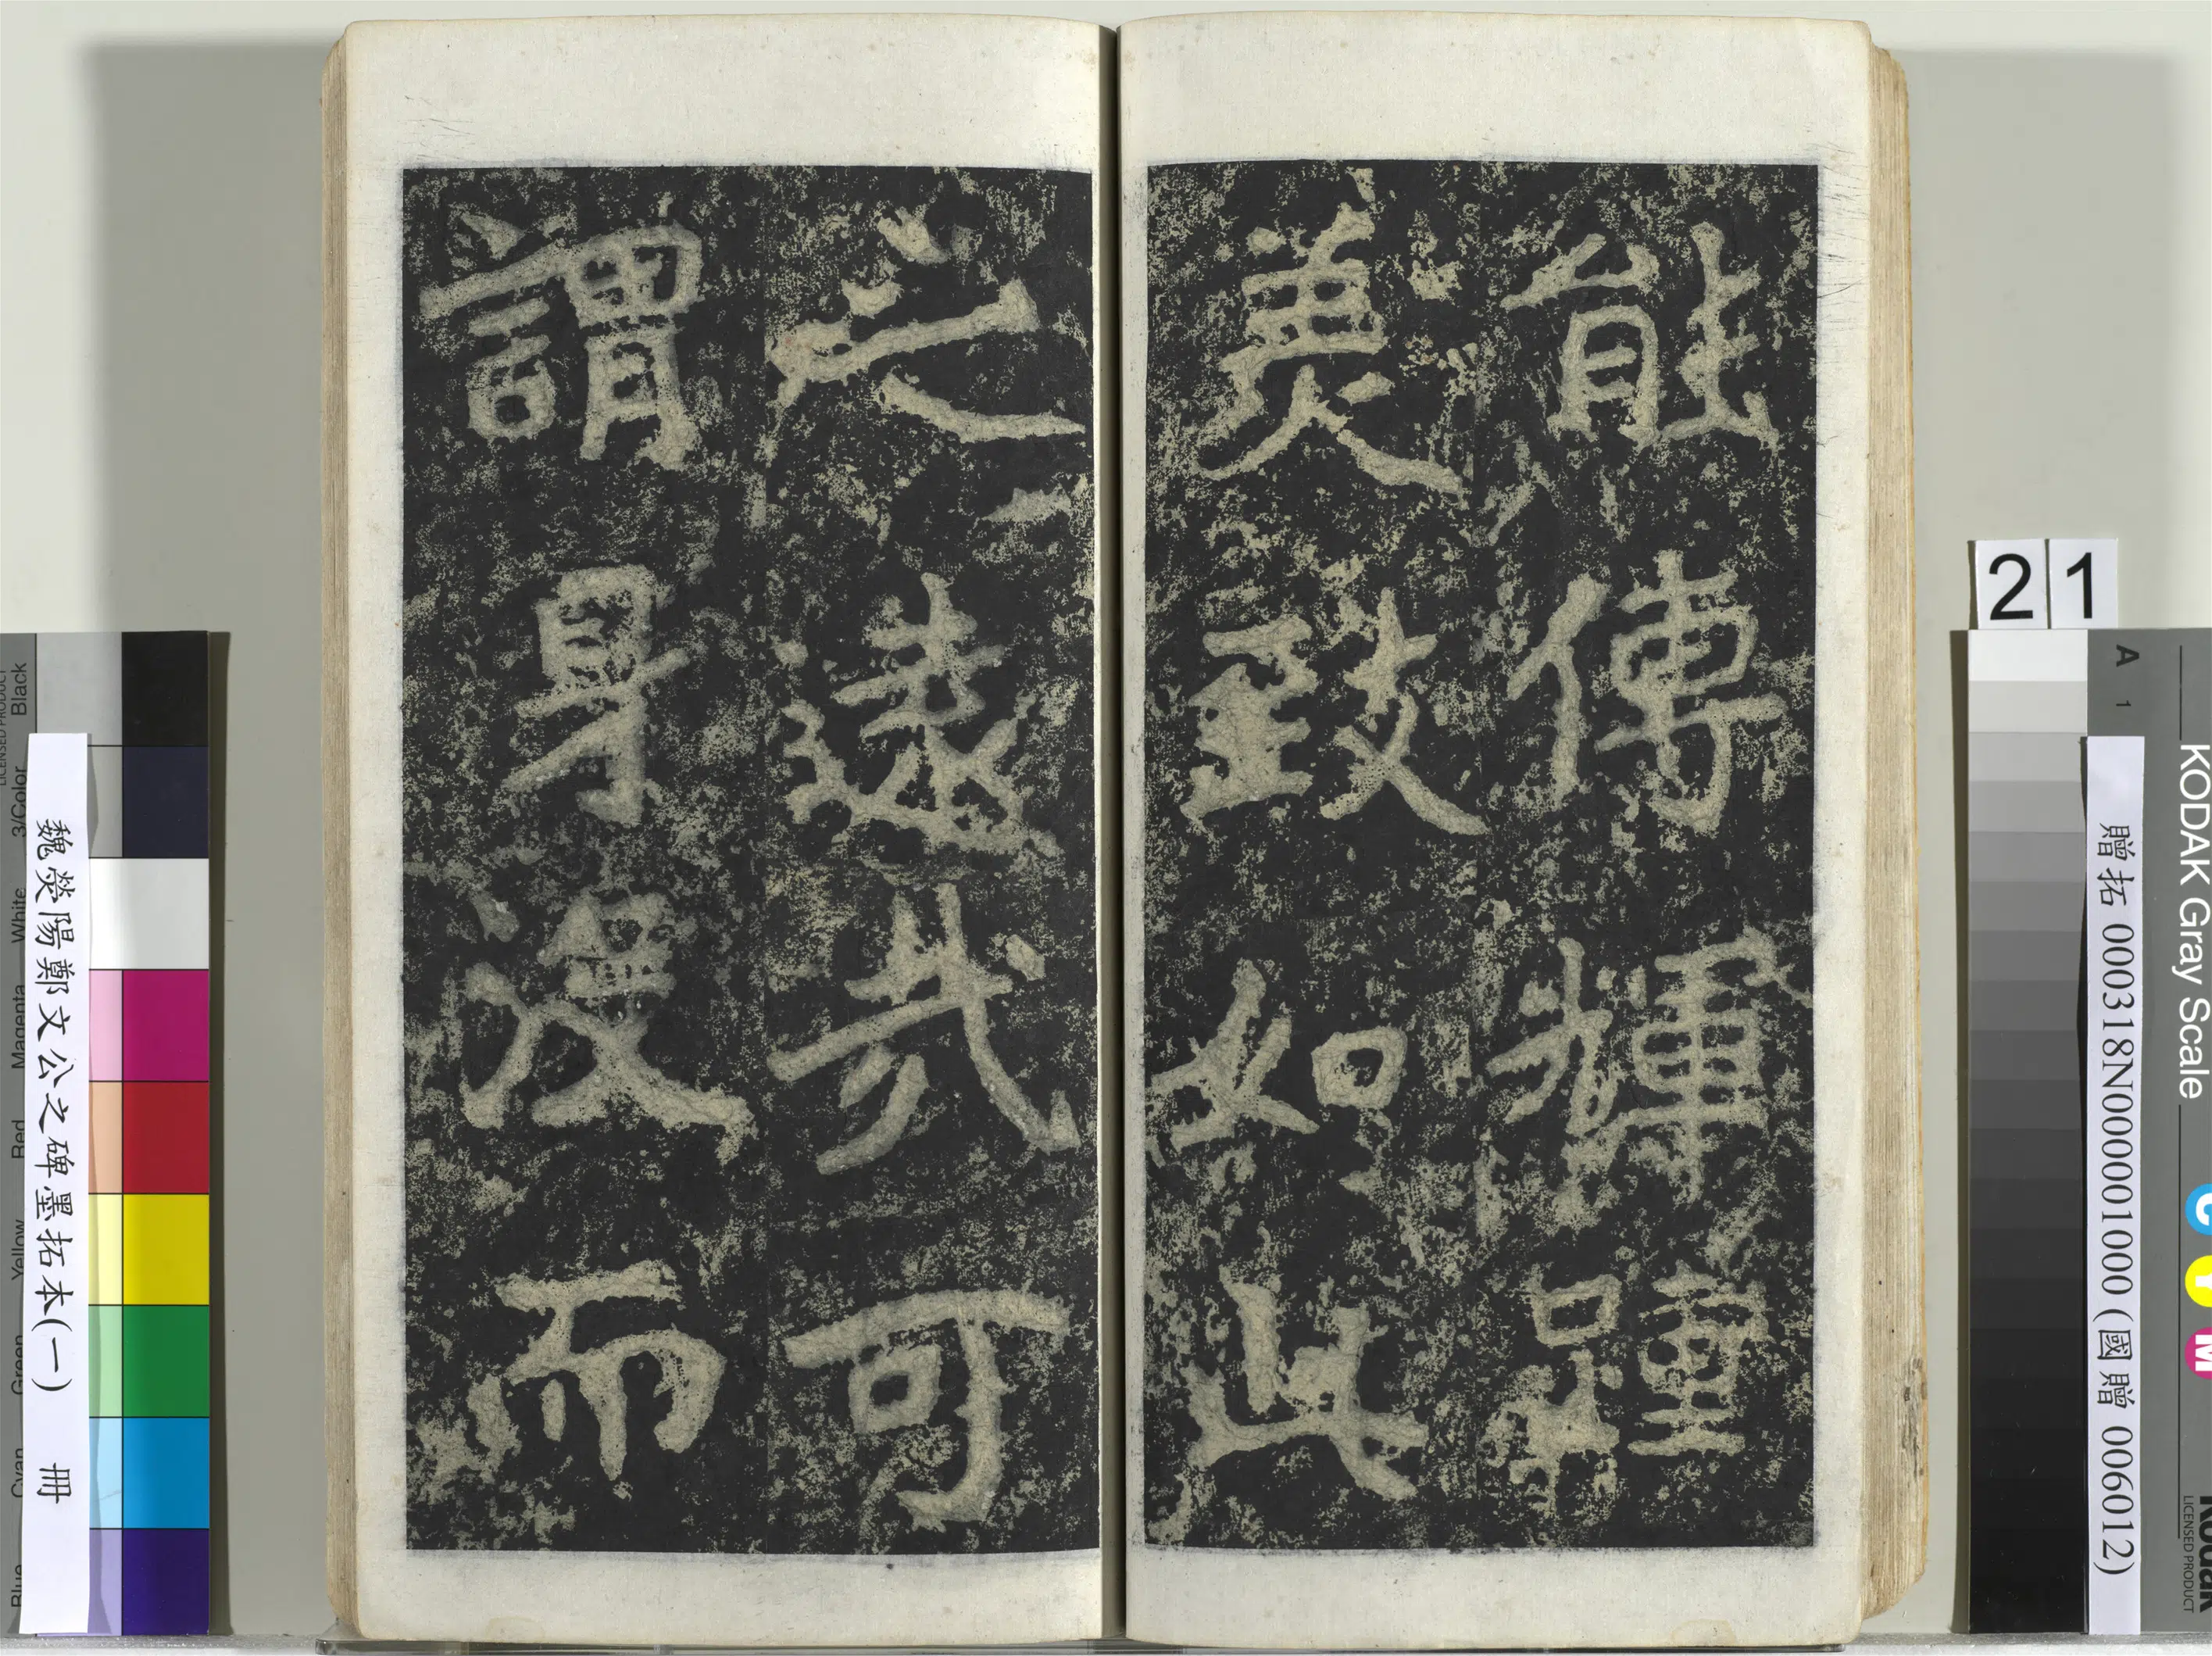 能傳輝踵
美致如此
之遠哉可
謂身沒而
魏滎陽鄭文公之碑墨拓本(一) 冊
贈拓 000318N000001000 (國贈 006012)
21
A 1
KODAK Gray Scale
C Y M
Kodak
LICENSED PRODUCT
Blue Cyan Green Yellow Red Magenta White 3/Color Black
LICENSED PRODUCT